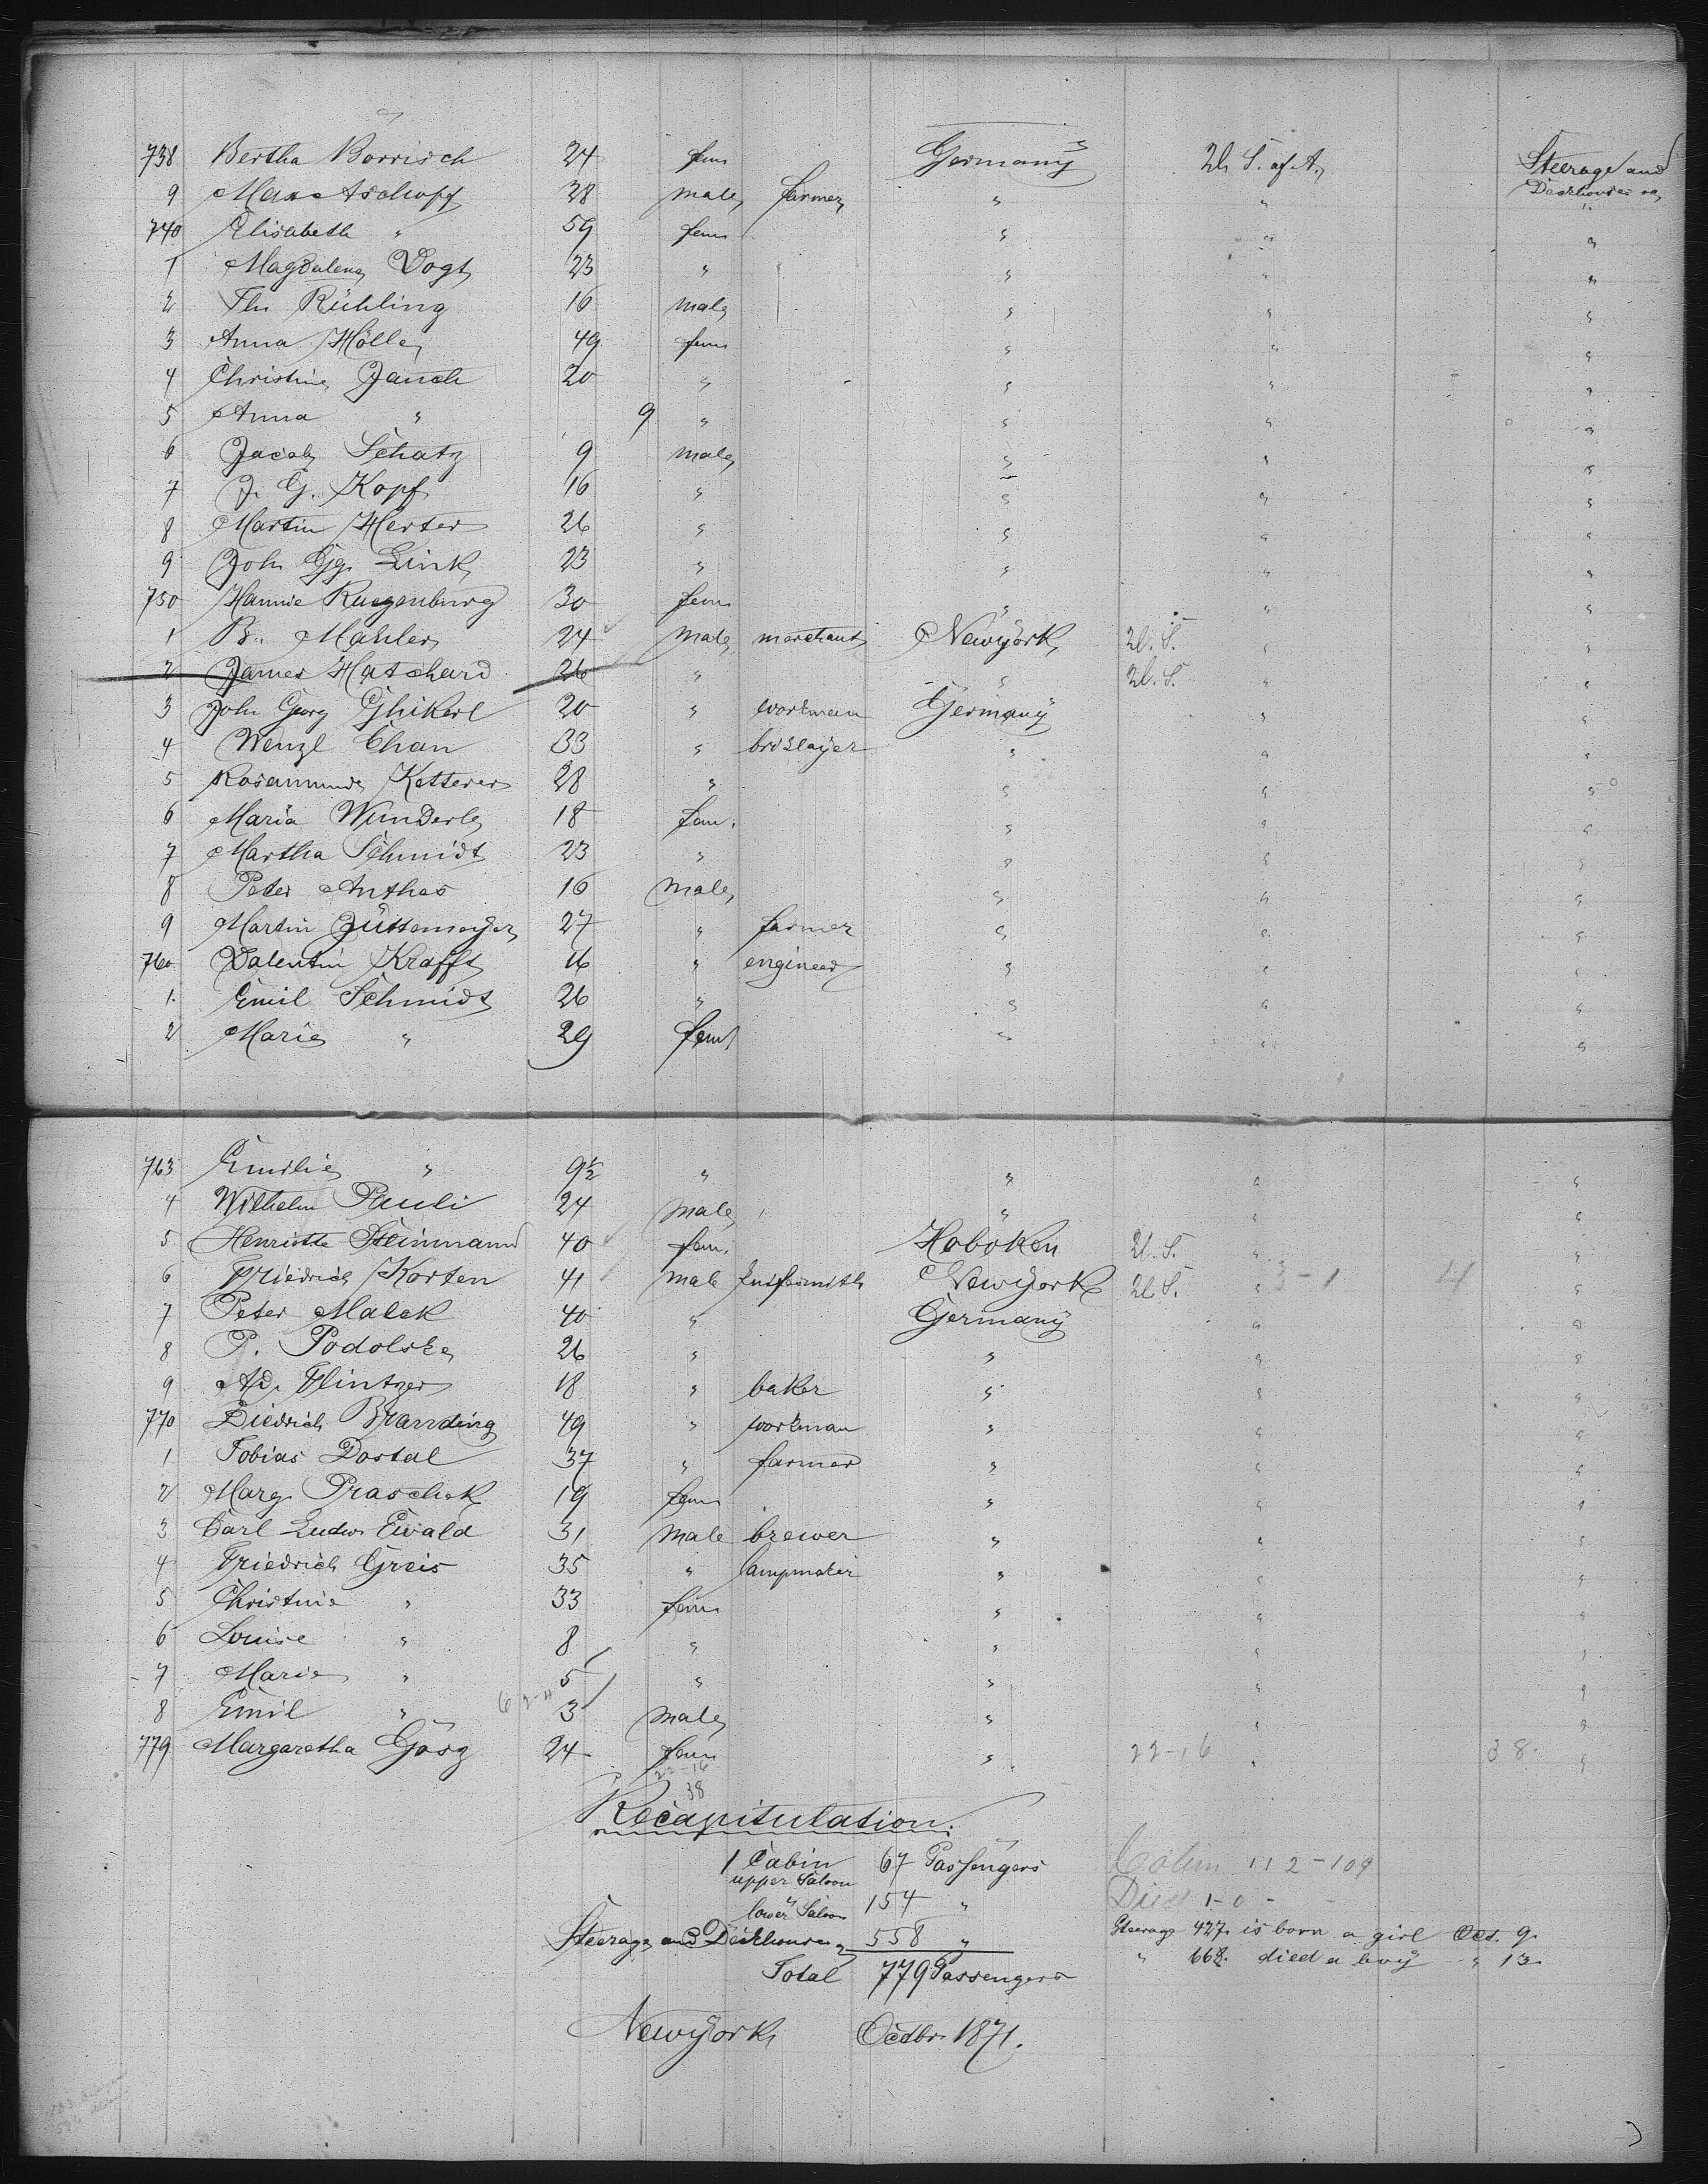 738 Bertha Borrisch 24 fem Germany U. S. of A. Steerage and
9 Max Aschopf 28 male farmer " " Deckhouse
740 Elisabeth " 59 fem " " "
1 Magdalena Vogt 23 " " " "
2 Th. Rühling 16 male " " "
3 Anna Hölle 49 fem " " "
4 Christine Jauch 20 " " " "
5 Anna " 9 " " " "
6 Jacob Schatz 9 male " " "
7 J. G. Kopf 16 " " " "
8 Martin Herter 26 " " " "
9 Joh. Gg. Link 23 " " " "
750 Hannie Ruegenburg 30 fem " " "
1 B. Mahler 24 male merchant Newyork U. S. " "
2 James Hatchard 26 " " U. S. " "
3 John Georg Ghikerl 20 " workman Germany " "
4 Wenzl Chan 33 " brislayer " " "
5 Rosamunde Ketterer 28 " " " "
6 Maria Wunderle 18 fem. " " "
7 Martha Schmidt 23 " " " "
8 Peter Anthes 16 male " " "
9 Martin Jüttemeyer 27 " farmer " " "
760 Valentin Krafft 16 " engineer " " "
1 Emil Schmidt 26 " " " "
2 Marie " 29 fem " " "
763 Emilie " 9½ " " " "
4 Wilhelm Pauli 24 male " " "
5 Henriette Steinmann 40 fem. Hoboken U. S. " "
6 Friedrich Korten 41 male knifesmith Newyork U. S. " 3-1 4 "
7 Peter Malek 40 " Germany " "
8 P. Podolske 26 " " " "
9 Ad. Flintzer 18 " baker " " "
770 Diedrich Branding 49 " workman " " "
1 Tobias Dostal 37 " farmer " " "
2 Marg. Praschek 19 fem " " "
3 Carl Ludw. Ewald 31 male brewer " " "
4 Friedrich Greis 35 " lampmaker " " "
5 Christine " 33 fem " " "
6 Louise " 8 " " " "
7 Marie " 5 " " " "
8 Emil " 3 male " " "
779 Margaretha Gösz 24 fem " 22-16 " 38 "
22-16
38
Recapitulation.
1 Cabin 67 Passengers
upper Saloon
lower Saloon 154 "
Steerage and Deckhouse 558 "
Total 779 Passengers
112-109
Died 1-0
Steerage 427. is born a girl Oct. 9.
" 668. died a boy " 13
Newyork Octbr. 1871.